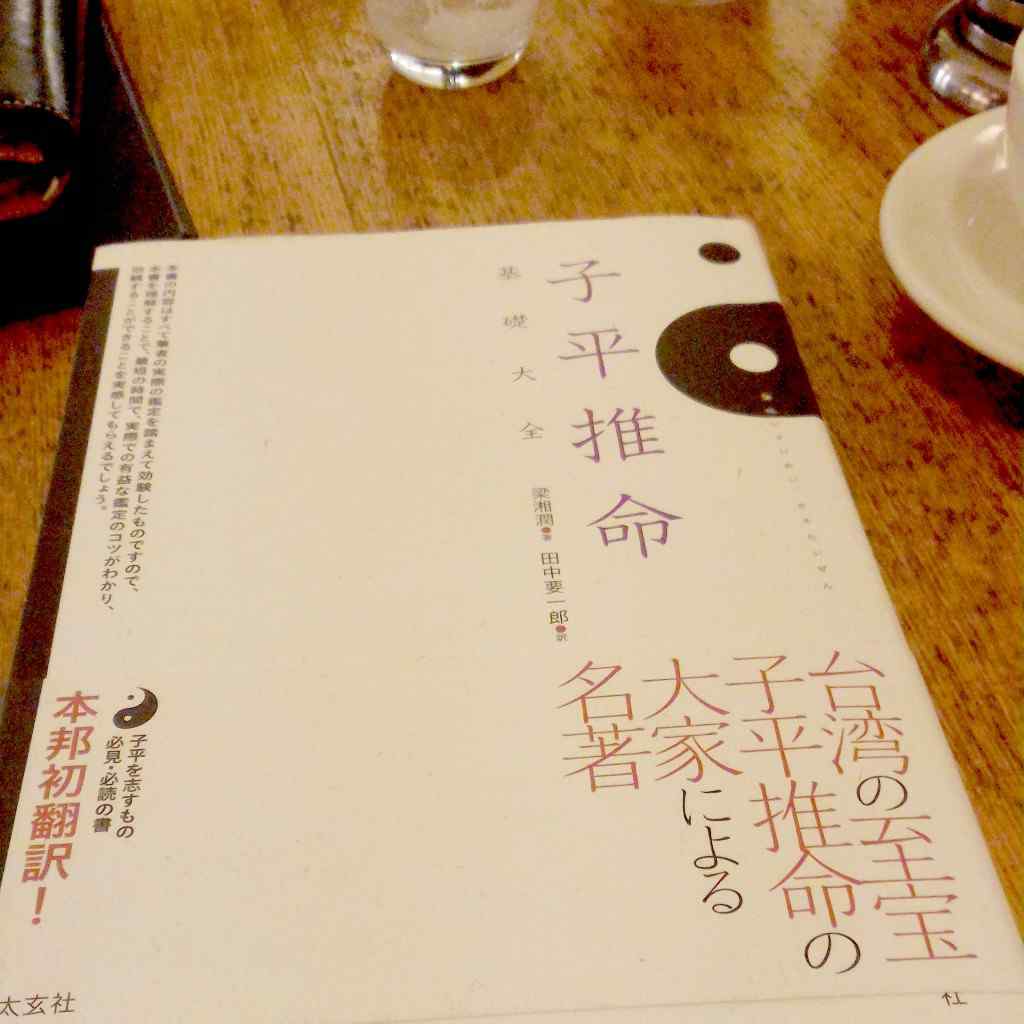 子平推命
基礎大全
梁湘潤●著 田中要一郎●訳
台湾の至宝
子平推命の
大家による
名著
本書の内容はすべて筆者の実際の鑑定を踏まえて効験したものですので、
本書を理解することで、最短の時間で、実際での有益な鑑定のコツがわかり、
効験することができることを実感してもらえるでしょう。
子平を志すもの
必見・必読の書
本邦初翻訳!
太玄社
社